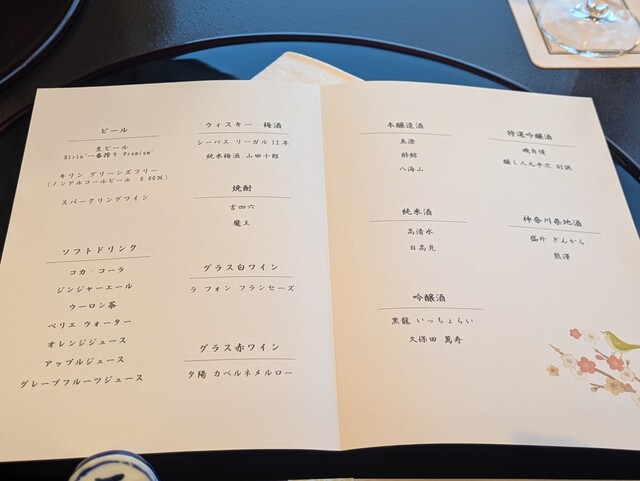 ビール
生ビール
Kirin"一番搾り Premium"
キリン グリーンズフリー
(ノンアルコールビール 0.00%)
スパークリングワイン
ソフトドリンク
コカ・コーラ
ジンジャーエール
ウーロン茶
ペリエ ウォーター
オレンジジュース
アップルジュース
グレープフルーツジュース
ウィスキー・梅酒
シーバス リーガル12年
純米梅酒 山田十郎
焼酎
吉四六
魔王
グラス白ワイン
ラ フォン フランセーズ
グラス赤ワイン
夕陽 カベルネメルロー
本醸造酒
真澄
酔鯨
八海山
純米酒
高清水
日高見
吟醸酒
黒龍 いっちょらい
久保田 萬寿
特選吟醸酒
磯自慢
醸し人九平次 別誂
神奈川県地酒
盛升 ぎんから
熊澤